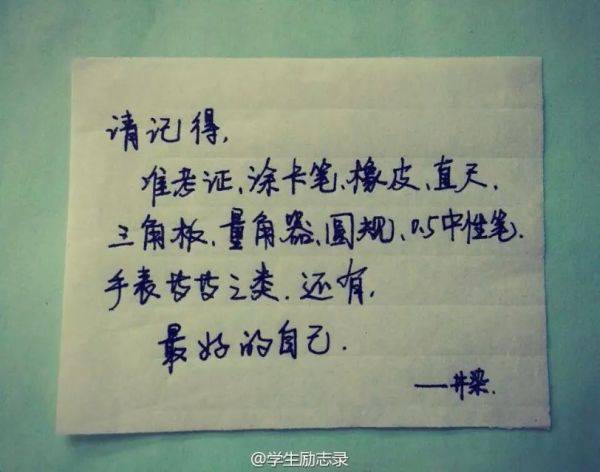 请记得,
准考证、涂卡笔、橡皮、直尺、
三角板、量角器、圆规、0.5中性笔、
手表等等之类.还有,
最好的自己.
——井染.
@学生励志录